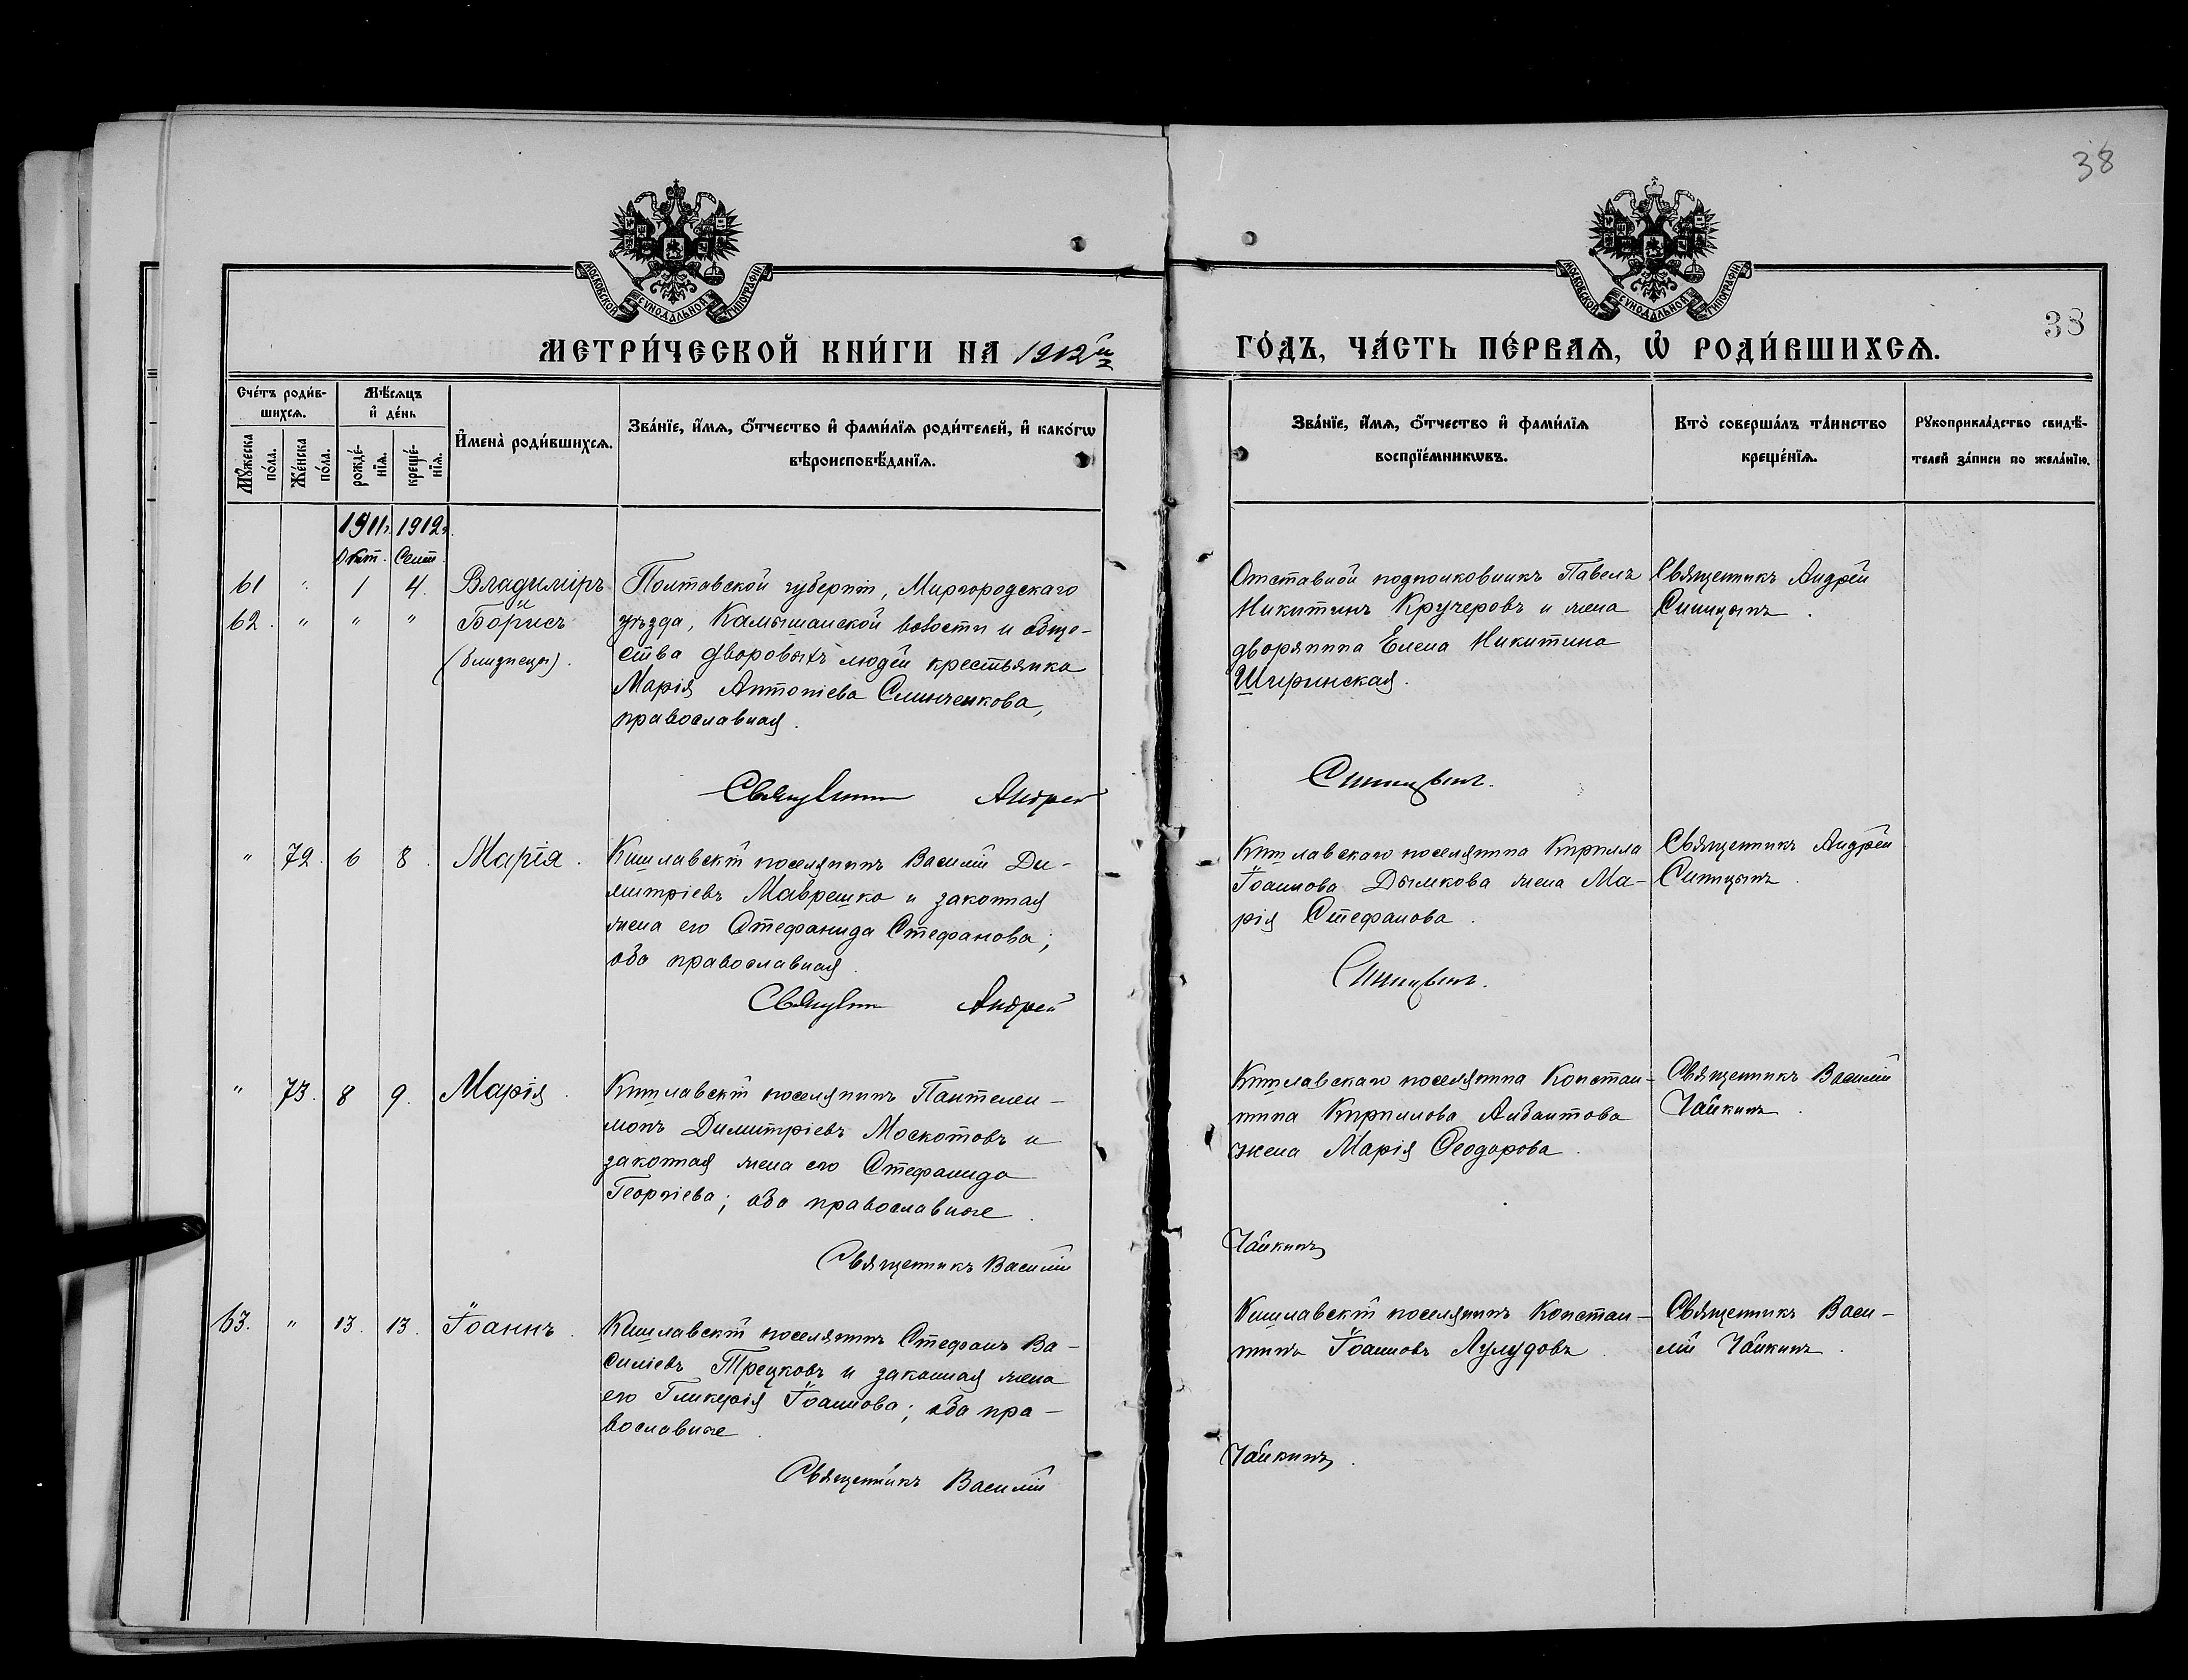 38
МОСКОВСКОЙ СѴНОДАЛЬНОЙ ТИПОГРАФІИ
МОСКОВСКОЙ СѴНОДАЛЬНОЙ ТИПОГРАФІИ
38
МЕТРИ́ЧЕСКОЙ КНИ́ГИ НА 1912й
ГО́ДЪ, ЧА́СТЬ ПЕ́РВАѦ, Ѡ҆ РОДИ́ВШИХСѦ.
Сче́тъ роди́в-
шихсѧ.
Мѣ́сѧцъ
и҆ де́нь
Мꙋ́жеска
по́ла.
Же́нска
по́ла.
рожде́-
нїѧ.
креще́-
нїѧ.
И҆мена̀ роди́вшихсѧ.
Зва́нїе, и҆́мѧ, ѻ҆́тчество и҆ фами́лїѧ роди́телей, и҆ како́гѡ
вѣроисповѣ́данїѧ.
Зва́нїе, и҆́мѧ, ѻ҆́тчество и҆ фами́лїѧ
воспрїе́мникѡвъ.
Кто̀ соверша́лъ та́инство
креще́нїѧ.
Рꙋкоприкла́дство свидѣ́-
телей за́писи по жела́нїю.
1911г. 1912г.
Окт. Сент.
61 " 1 4. Владиміръ
и
62. " " " Борисъ
(близнецы).
Полтавской губерніи, Миргородскаго
уѣзда, Камышанской волости и обще-
ства дворовыхъ людей крестьянка
Марія Антоніева Слинченкова,
православная.
Отставной подполковникъ Павелъ
Никитинъ Кручеровъ и жена
дворянина Елена Никитина
Ширинская.
Священникъ Андрей
Синицынъ.
Священникъ Андрей
Синицынъ.
" 72. 6 8. Марія.
Кишлавскій поселянинъ Василій Ди-
митріевъ Маврешко и законная
жена его Стефанида Стефанова;
оба православная.
Священникъ Андрей
Кишлавскаго поселянина Кирилла
Іоаннова Дымкова жена Ма-
рія Стефанова.
Синицынъ.
Священникъ Андрей
Синицынъ.
" 73. 8 9. Марія.
Кишлавскій поселянинъ Пантелеи-
монъ Димитріевъ Москотовъ и
законная жена его Стефанида
Георгіева; оба православные.
Священникъ Василій
Кишлавскаго поселянина Констан-
тина Кириллова Анбантова
жена Марія Ѳеодорова.
Чайкинъ
Священникъ Василій
Чайкинъ.
63. " 13. 13. Іоаннъ.
Кишлавскій поселянинъ Стефанъ Ва-
силіевъ Трецковъ и законная жена
его Гликерія Іоаннова; оба пра-
вославные.
Священникъ Василій
Кишлавскій поселянинъ Констан-
тинъ Іоанновъ Лулудовъ.
Чайкинъ.
Священникъ Васи-
лій Чайкинъ.